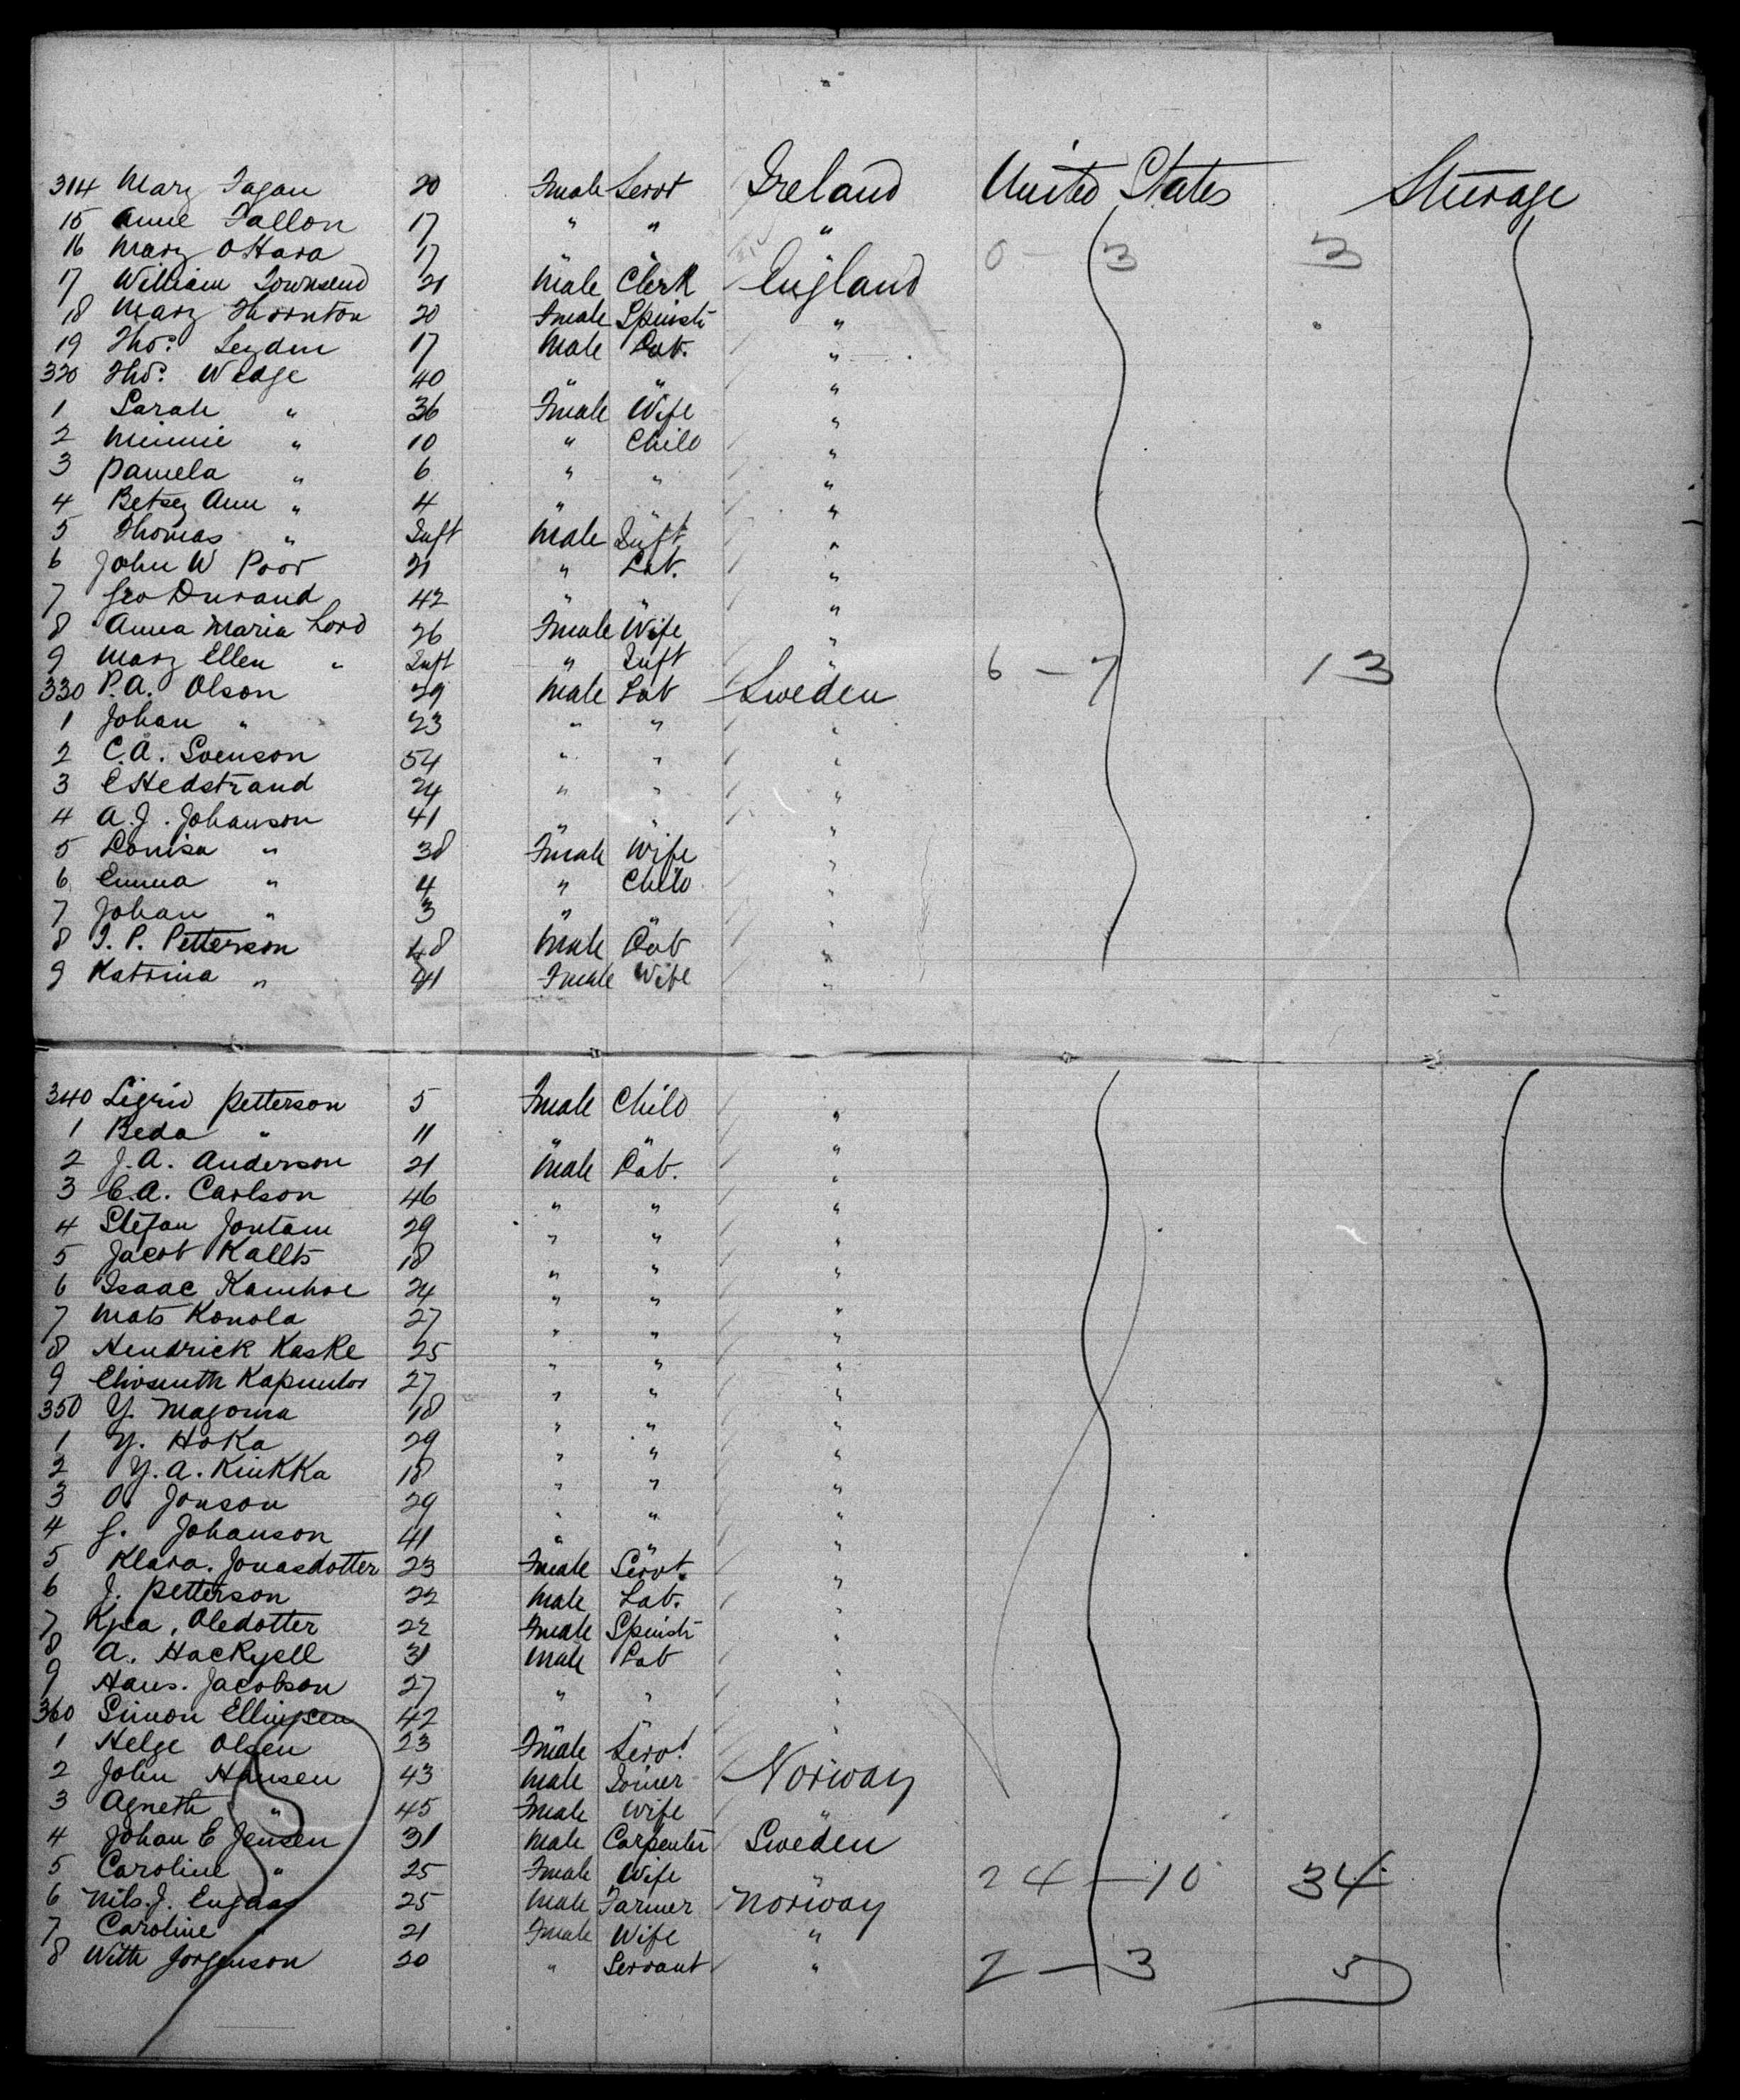 314 Mary Fagan 20 Female Servt Ireland United States Steerage
15 Anne Fallon 17 " " "
16 Mary OHara 17 " " " 0 - 3 3
17 William Townsend 21 Male Clerk England
18 Mary Thornton 20 Female Spinstr "
19 Thos. Leyden 17 Male Lab. "
320 Thos. Wedge 40 " " "
1 Sarah " 36 Female Wife "
2 Minnie " 10 " Child "
3 Pamela " 6 " " "
4 Betsey Ann " 4 " " "
5 Thomas " Inft Male Inft "
6 John W Poor 21 " Lab. "
7 Geo Durand 42 " " "
8 Anna Maria Lord 26 Female Wife "
9 Mary Ellen " Inft " Inft " 6 - 7 13
330 P.A. Olson 29 Male Lab Sweden
1 Johan " 23 " " "
2 C.A. Svenson 54 " " "
3 E Hedstrand 24 " " "
4 A.J. Johanson 41 " " "
5 Lovisa " 38 Female Wife "
6 Emma " 4 " Child "
7 Johan " 3 " " "
8 I. P. Petterson 48 Male Lab "
9 Katrina " 41 Female Wife "
340 Sigrid Petterson 5 Female Child "
1 Beda " 11 " " "
2 J.A. Anderson 21 Male Lab. "
3 C.A. Carlson 46 " " "
4 Stefan Jontam 29 " " "
5 Jacob Kallts 18 " " "
6 Isaac Kamhoe 24 " " "
7 Mats Konola 27 " " "
8 Hendrick Kaske 25 " " "
9 27 " " "
350 Y. Magoma 18 " " "
1 Y. Hoka 29 " " "
2 Y.A. Kinkka 18 " " "
3 O. Jonson 29 " " "
4 G. Johanson 41 " " "
5 Klara. Jonasdotter 23 Female Servt. "
6 J. Petterson 22 Male Lab. "
7 Kjsa, Oledotter 22 Female Spinstr "
8 A. Hackyell 31 Male Lab "
9 Hans. Jacobson 27 " " "
360 Simon Ellingsen 42 " " "
1 Helge Olsen 23 Female Servt
2 John Hansen 43 Male Joiner Norway
3 Agneth " 45 Female Wife "
4 Johan E Jensen 31 Male Carpenter Sweden
5 Caroline " 25 Female Wife " 24 - 10 34
6 Nils. J. Engaas 25 Male Farmer Norway
7 Caroline " 21 Female Wife "
8 With Jorgenson 20 " Servant " 2 - 3 5